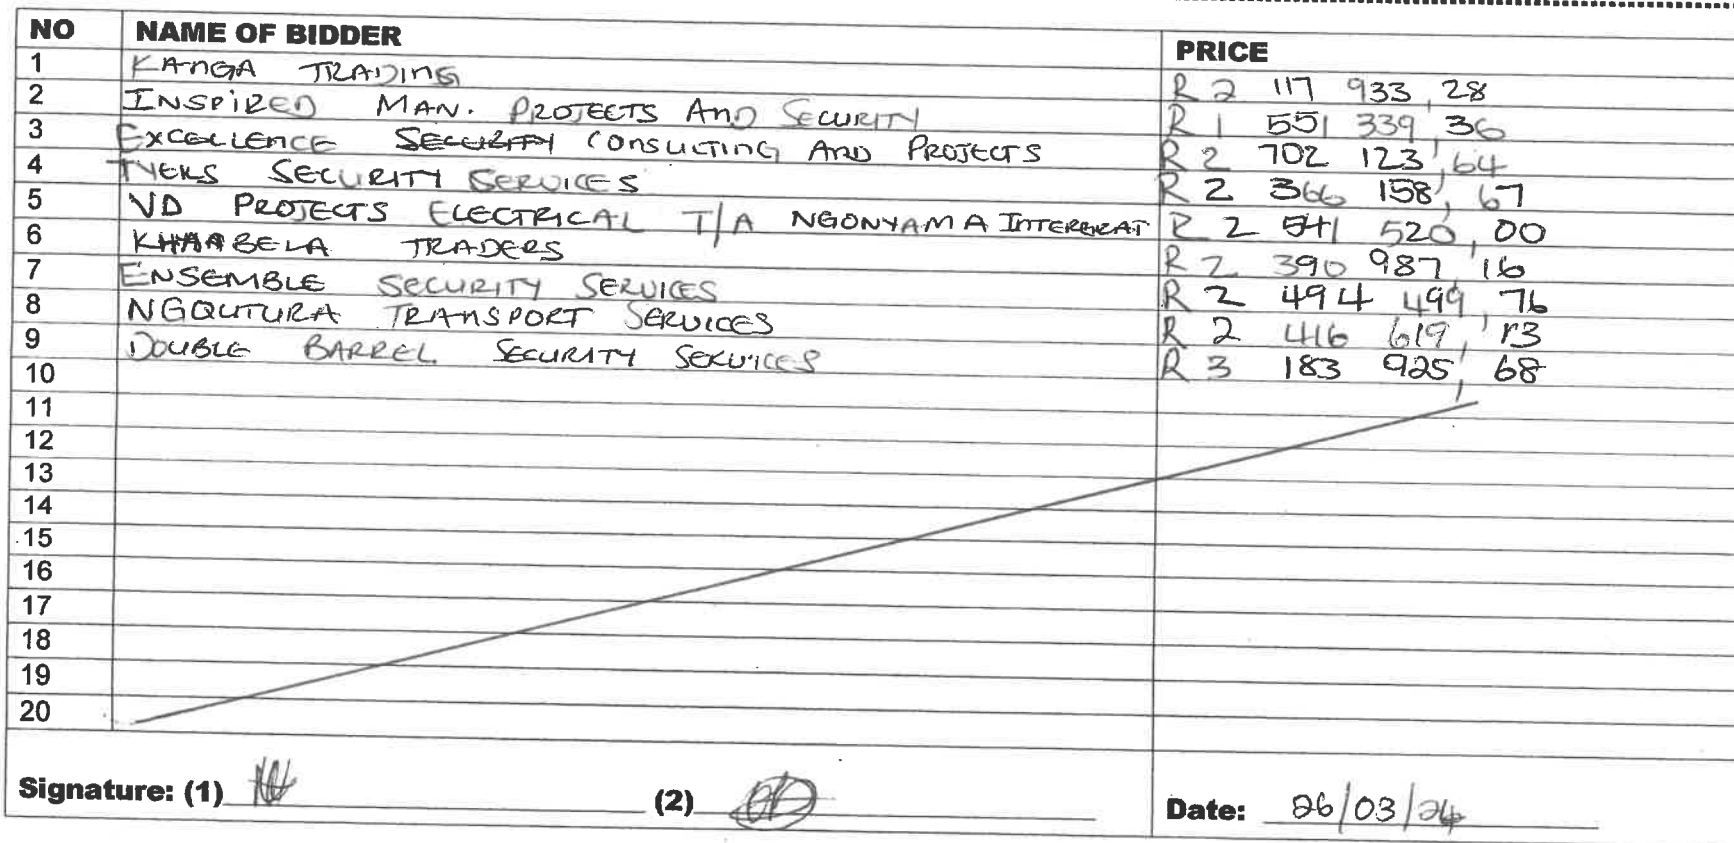 NO NAME OF BIDDER PRICE
1 KANGA TRADING R 2 117 933,28
2 INSPIRED MAN. PROJECTS AND SECURITY R 1 551 339,36
3 EXCELLENCE SECURITY CONSULTING AND PROJECTS R 2 702 123,64
4 TYEKS SECURITY SERVICES R 2 366 158,67
5 VD PROJECTS ELECTRICAL T/A NGONYAMA INTERGRAT R 2 541 520,00
6 KHAABELA TRADERS R 2 390 987,16
7 ENSEMBLE SECURITY SERVICES R 2 494 499,76
8 NGQUTURA TRANSPORT SERVICES R 2 416 619,13
9 DOUBLE BARREL SECURITY SERVICES R 3 183 925,68
10
11
12
13
14
15
16
17
18
19
20
Signature: (1) (2) Date: 26/03/24